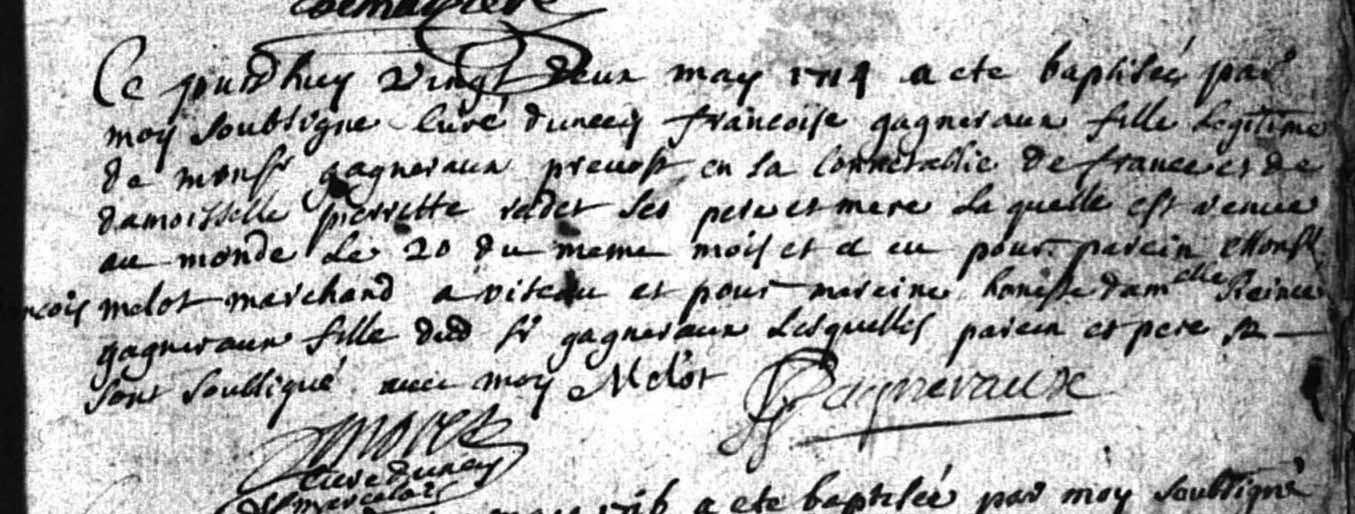 Ce jourdhuy vingt deux may 1714 a ete baptisée par
moy soubsigne curé duncey francoise gagneraux fille legitime
de monsr gagneraux prevost en la connetablie de france et de
damoisselle pierrette radet ses pere et mere laquelle est venue
au monde le 20 du meme mois et a eu pour parein Monsr
francois melot marchand a viteau et pour mareine honeste damelle Reine
gagneraux fille dud sr gagneraux lesquelles parein et pere se
sont soubsigné avec moy Melot Gagneraux
curé duncey
a ete baptisée par moy soubsigné